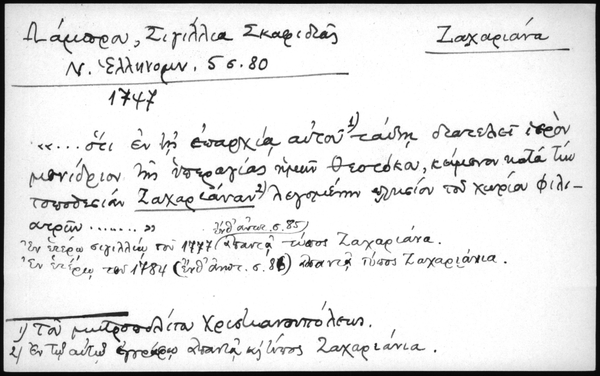 Λάμπρου, Σιγίλλια Σκαριδιᾶς
Ζαχαριάνα
Ν. Ἑλληνομν. 5 σ. 80
1747
«... ὅτι ἐν τῇ ἐπαρχίᾳ αὐτοῦ¹⁾ ταύτῃ διατελεῖ ἱερὸν
μονίδριον τῆς ὑπεραγίας ἡμῶν Θεοτόκου, κείμενον κατὰ τὴν
τοποθεσίαν Ζαχαριάναν²⁾ λεγομένην πλησίον τοῦ χωρίου Φιλι-
ατρῶν ....... »
Ἐν ἑτέρῳ σιγιλλίῳ τοῦ 1777 (ἔνθ' ἀνωτ. σ. 85) ἀπαντᾷ τύπος Ζαχαριάνα.
Ἐν ἑτέρῳ τοῦ 1784 (ἔνθ' ἀνωτ. σ. 86) ἀπαντᾷ τύπος Ζαχαριάνια.
1) Τοῦ μητροπολίτου Χριστιανουπόλεως.
2) Ἐν τῷ αὐτῷ ἐγγράφῳ ἀπαντᾷ κ' τύπος Ζαχαριάνια.